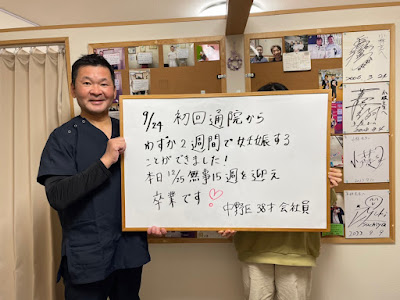 9/24 初回通院から
わずか2週間で妊娠する
ことができました!
本日12/25無事15週を迎え
卒業です♡
中野区 38才 会社員